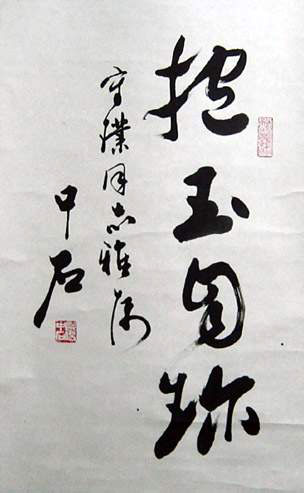 抱玉自珍
守璞同志雅属
中石